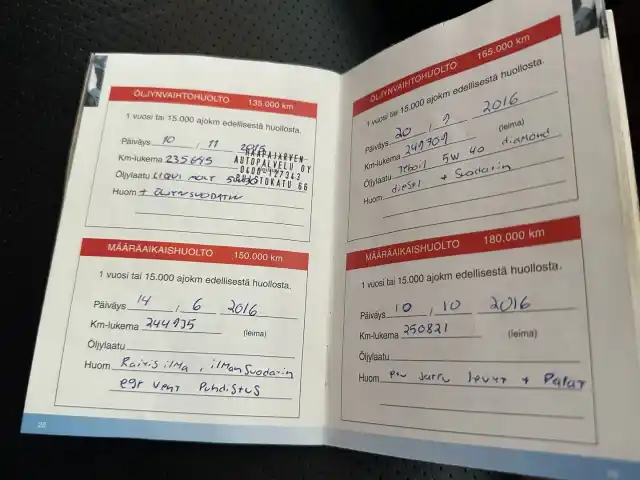 ÖLJYNVAIHTOHUOLTO 135.000 km
1 vuosi tai 15.000 ajokm edellisestä huollosta.
Päiväys 10 . 11 2015
Km-lukema 235645
HAAPAJÄRVEN
AUTOPALVELU OY
0400 127343
PUISTOKATU 66
Öljylaatu LIQUI MOLY
Huom + ÖLJYNSUODATIN
MÄÄRÄAIKAISHUOLTO 150.000 km
1 vuosi tai 15.000 ajokm edellisestä huollosta.
Päiväys 14 . 6 2016
Km-lukema 244935 (leima)
Öljylaatu
Huom Raitis ilma, ilMan Suodatin
egr vent Puhdistus
28
ÖLJYNVAIHTOHUOLTO 165.000 km
1 vuosi tai 15.000 ajokm edellisestä huollosta.
Päiväys 20 . 9 2016
Km-lukema 249709 (leima)
Öljylaatu Teboil 5W 40 diamond
Huom diesel + Suodatin
MÄÄRÄAIKAISHUOLTO 180.000 km
1 vuosi tai 15.000 ajokm edellisestä huollosta.
Päiväys 10 . 10 2016
Km-lukema 250821 (leima)
Öljylaatu
Huom etu Jarru levyt + Palat